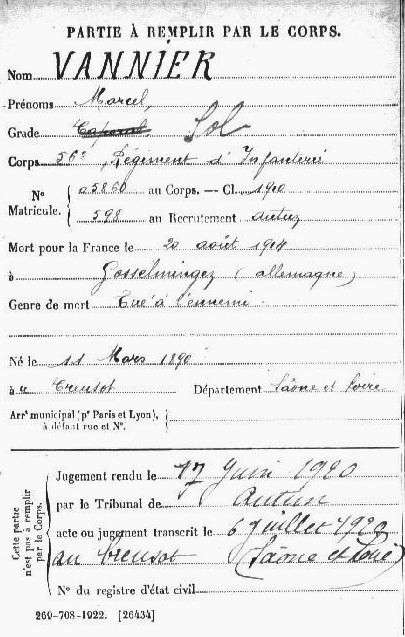 PARTIE À REMPLIR PAR LE CORPS.
Nom VANNIER
Prénoms Marcel,
Grade Caporal Sol
Corps 56e Régiment d'Infanterie
N° Matricule. { 05860 au Corps. — Cl. 1910
598 au Recrutement Autun
Mort pour la France le 20 août 1914
à Gosselmingez (allemagne)
Genre de mort Tué à l'ennemi
Né le 11 Mars 1890
à Creusot Département Saône et Loire
Arrt municipal (pr Paris et Lyon),
à défaut rue et N°.
Cette partie n'est pas à remplir par le Corps.
Jugement rendu le 17 Juin 1920
par le Tribunal de Autun
acte ou jugement transcrit le 6 Juillet 1920
au Creusot (Saône et Loire)
N° du registre d'état civil
269-708-1922. [26434]